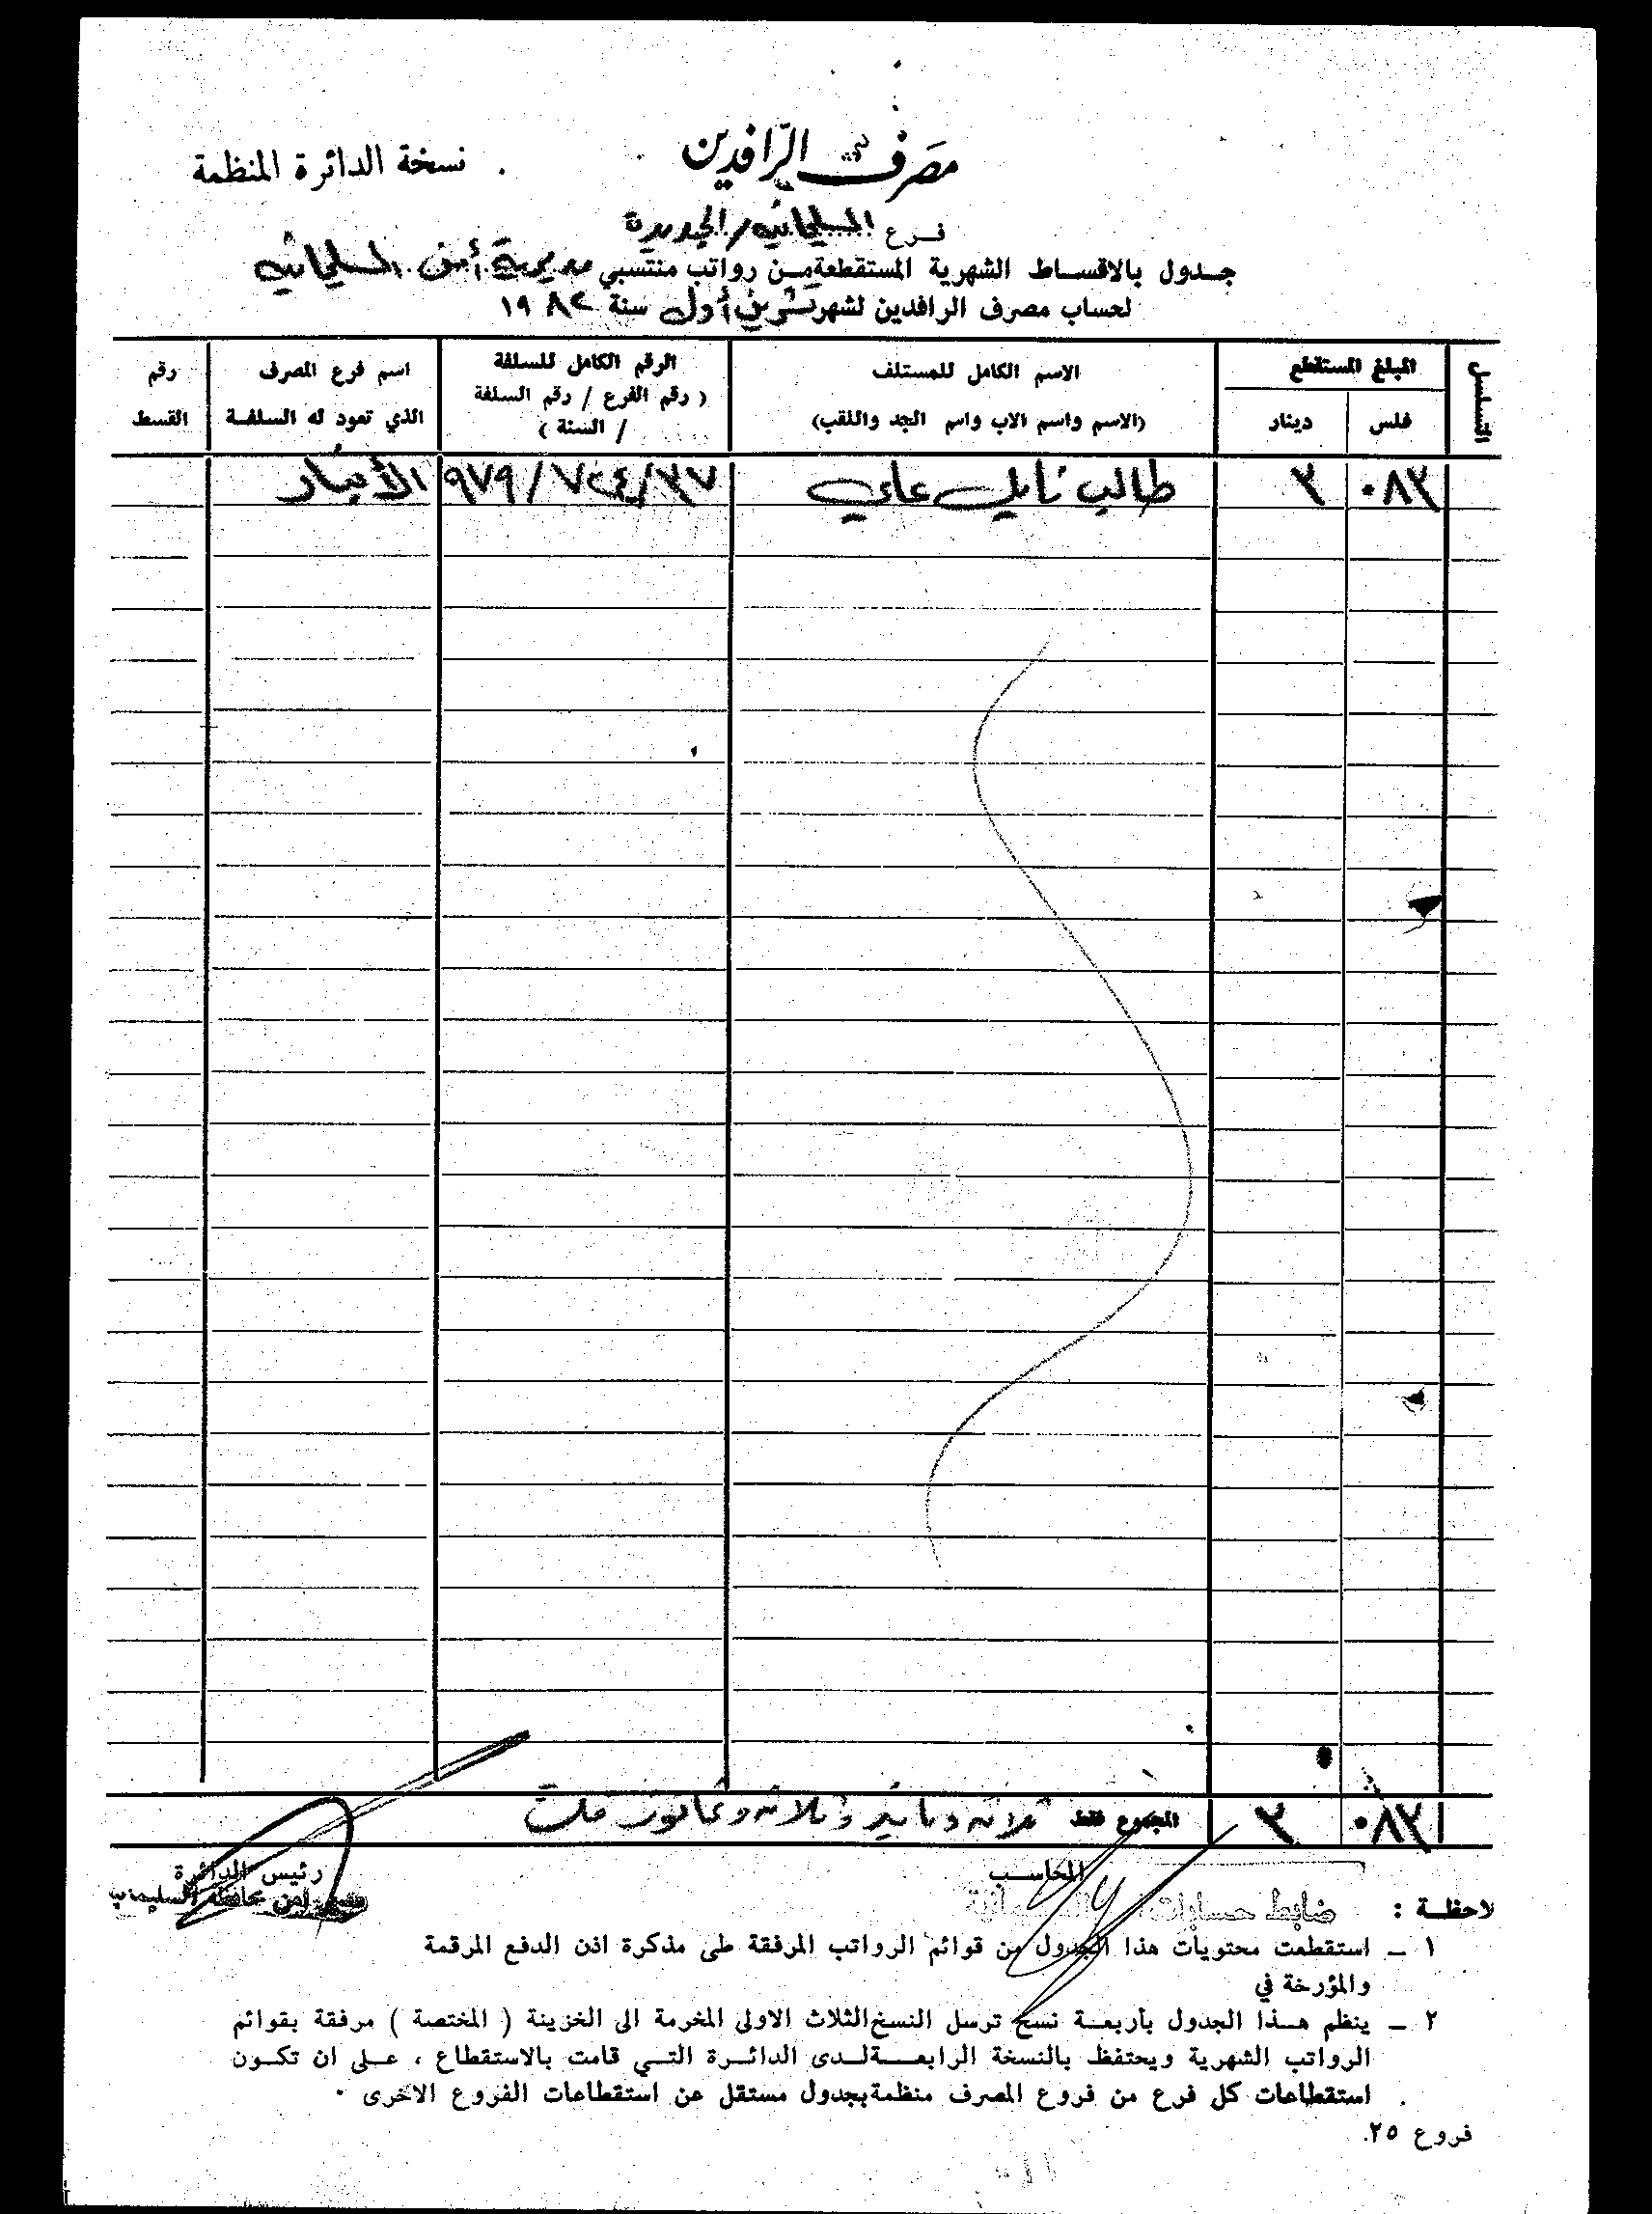 مصرف الرافدين
نسخة الدائرة المنظمة
فرع السليمانيه/الجديدة
جدول بالاقساط الشهرية المستقطعة من رواتب منتسبي مديرية أمن السليمانيه
لحساب مصرف الرافدين لشهر تشرين أول سنة ١٩٨٢
التسلسل المبلغ المستقطع الاسم الكامل للمستلف الرقم الكامل للسلفة اسم فرع المصرف رقم
فلس دينار (الاسم واسم الاب واسم الجد واللقب) ( رقم الفرع / رقم السلفة الذي تعود له السلفة القسط
/ السنة )
٠٨٣ ٣ طالب نايل علي ٣٧/٧٢٤/٩٧٩ الأنبار
٠٨٣ ٣ المجموع فقط ثلاثه دنانير وثلاثه وثمانون فلت
المحاسب رئيس الدائرة
ضابط حسابات امن محافظة السليمانية
لاحظة :
١ – استقطعت محتويات هذا الجدول من قوائم الرواتب المرفقة طى مذكرة اذن الدفع المرقمة
والمؤرخة في
٢ – ينظم هذا الجدول بأربعة نسخ ترسل النسخ الثلاث الاولى المخرمة الى الخزينة ( المختصة ) مرفقة بقوائم
الرواتب الشهرية ويحتفظ بالنسخة الرابعة لدى الدائرة التي قامت بالاستقطاع ، على ان تكون
استقطاعات كل فرع من فروع المصرف منظمة بجدول مستقل عن استقطاعات الفروع الاخرى ٠
فروع ٢٥.